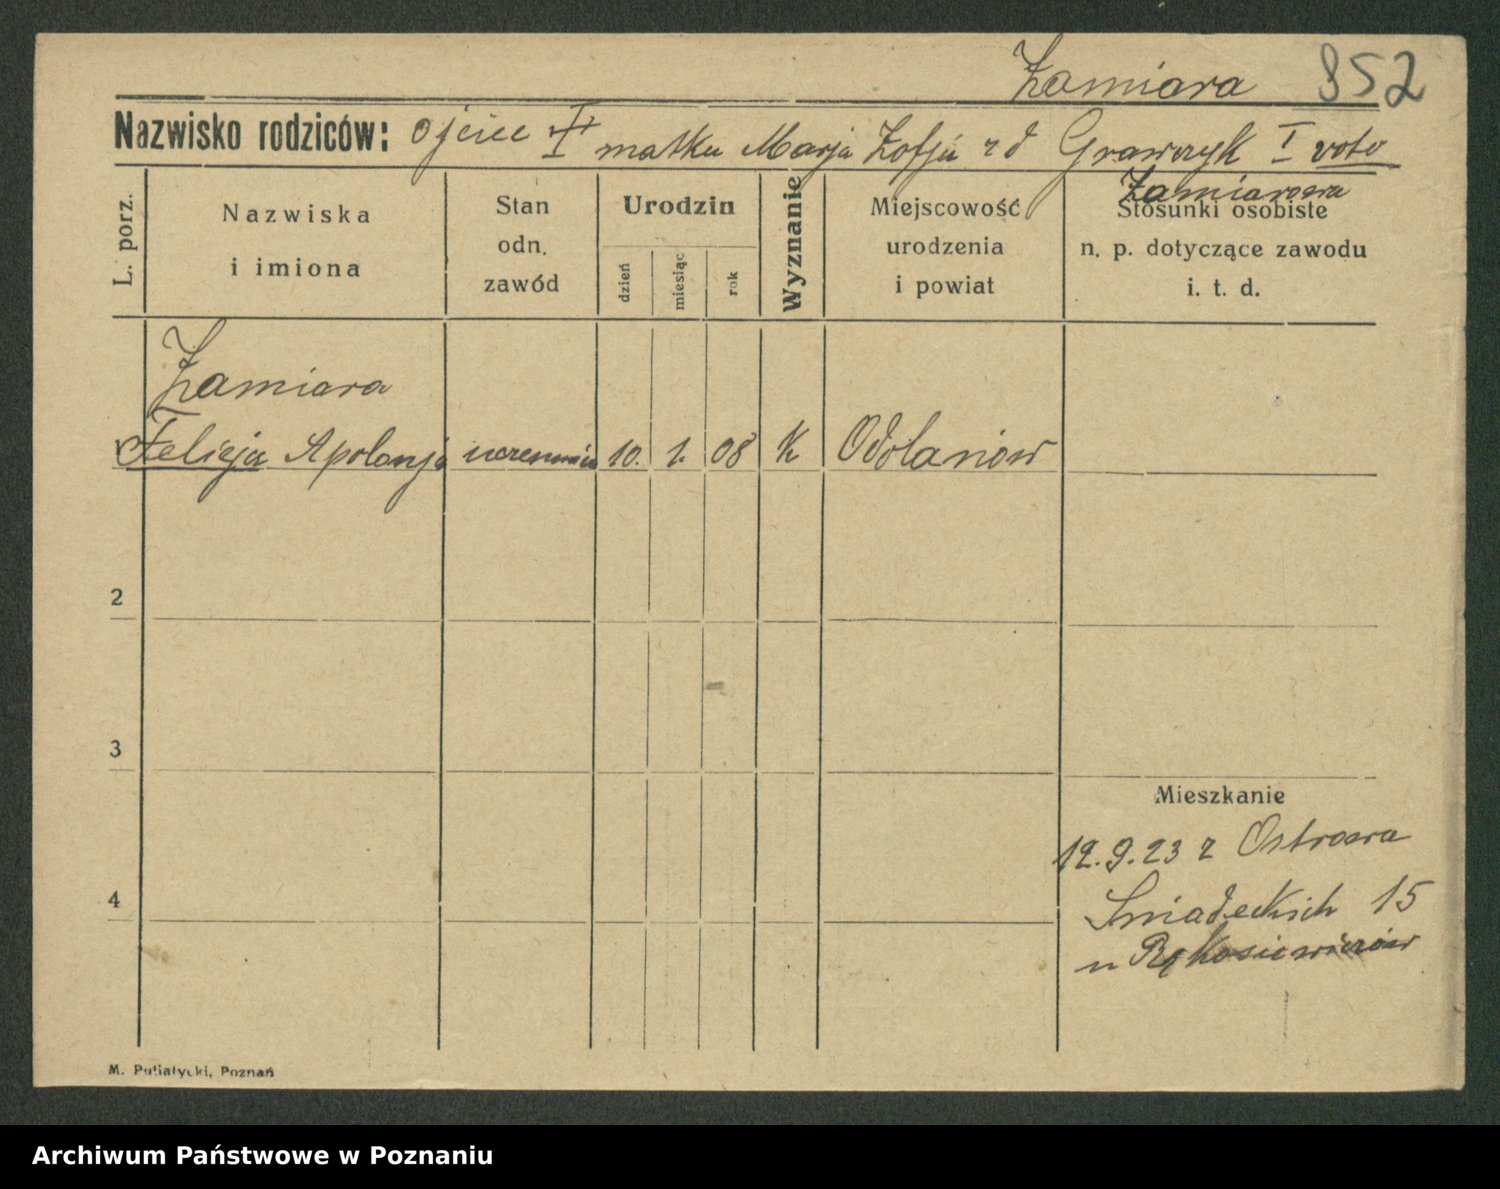 Żamiara 852
Nazwisko rodziców: ojciec † matka Marja Zofja z d Grawczyk I voto
Żamiarowa
L. porz.
Nazwiska
i imiona
Stan
odn.
zawód
Urodzin
dzień
miesiąc
rok
Wyznanie
Miejscowość
urodzenia
i powiat
Stosunki osobiste
n. p. dotyczące zawodu
i. t. d.
Żamiara
Felicja Apolonja uczennica 10. 1. 08 K Odolanów
2
3
Mieszkanie
12.9.23 z Ostrowa
4
Śniadeckich 15
u Rękosiewiczów
M. Putiatycki, Poznań
Archiwum Państwowe w Poznaniu